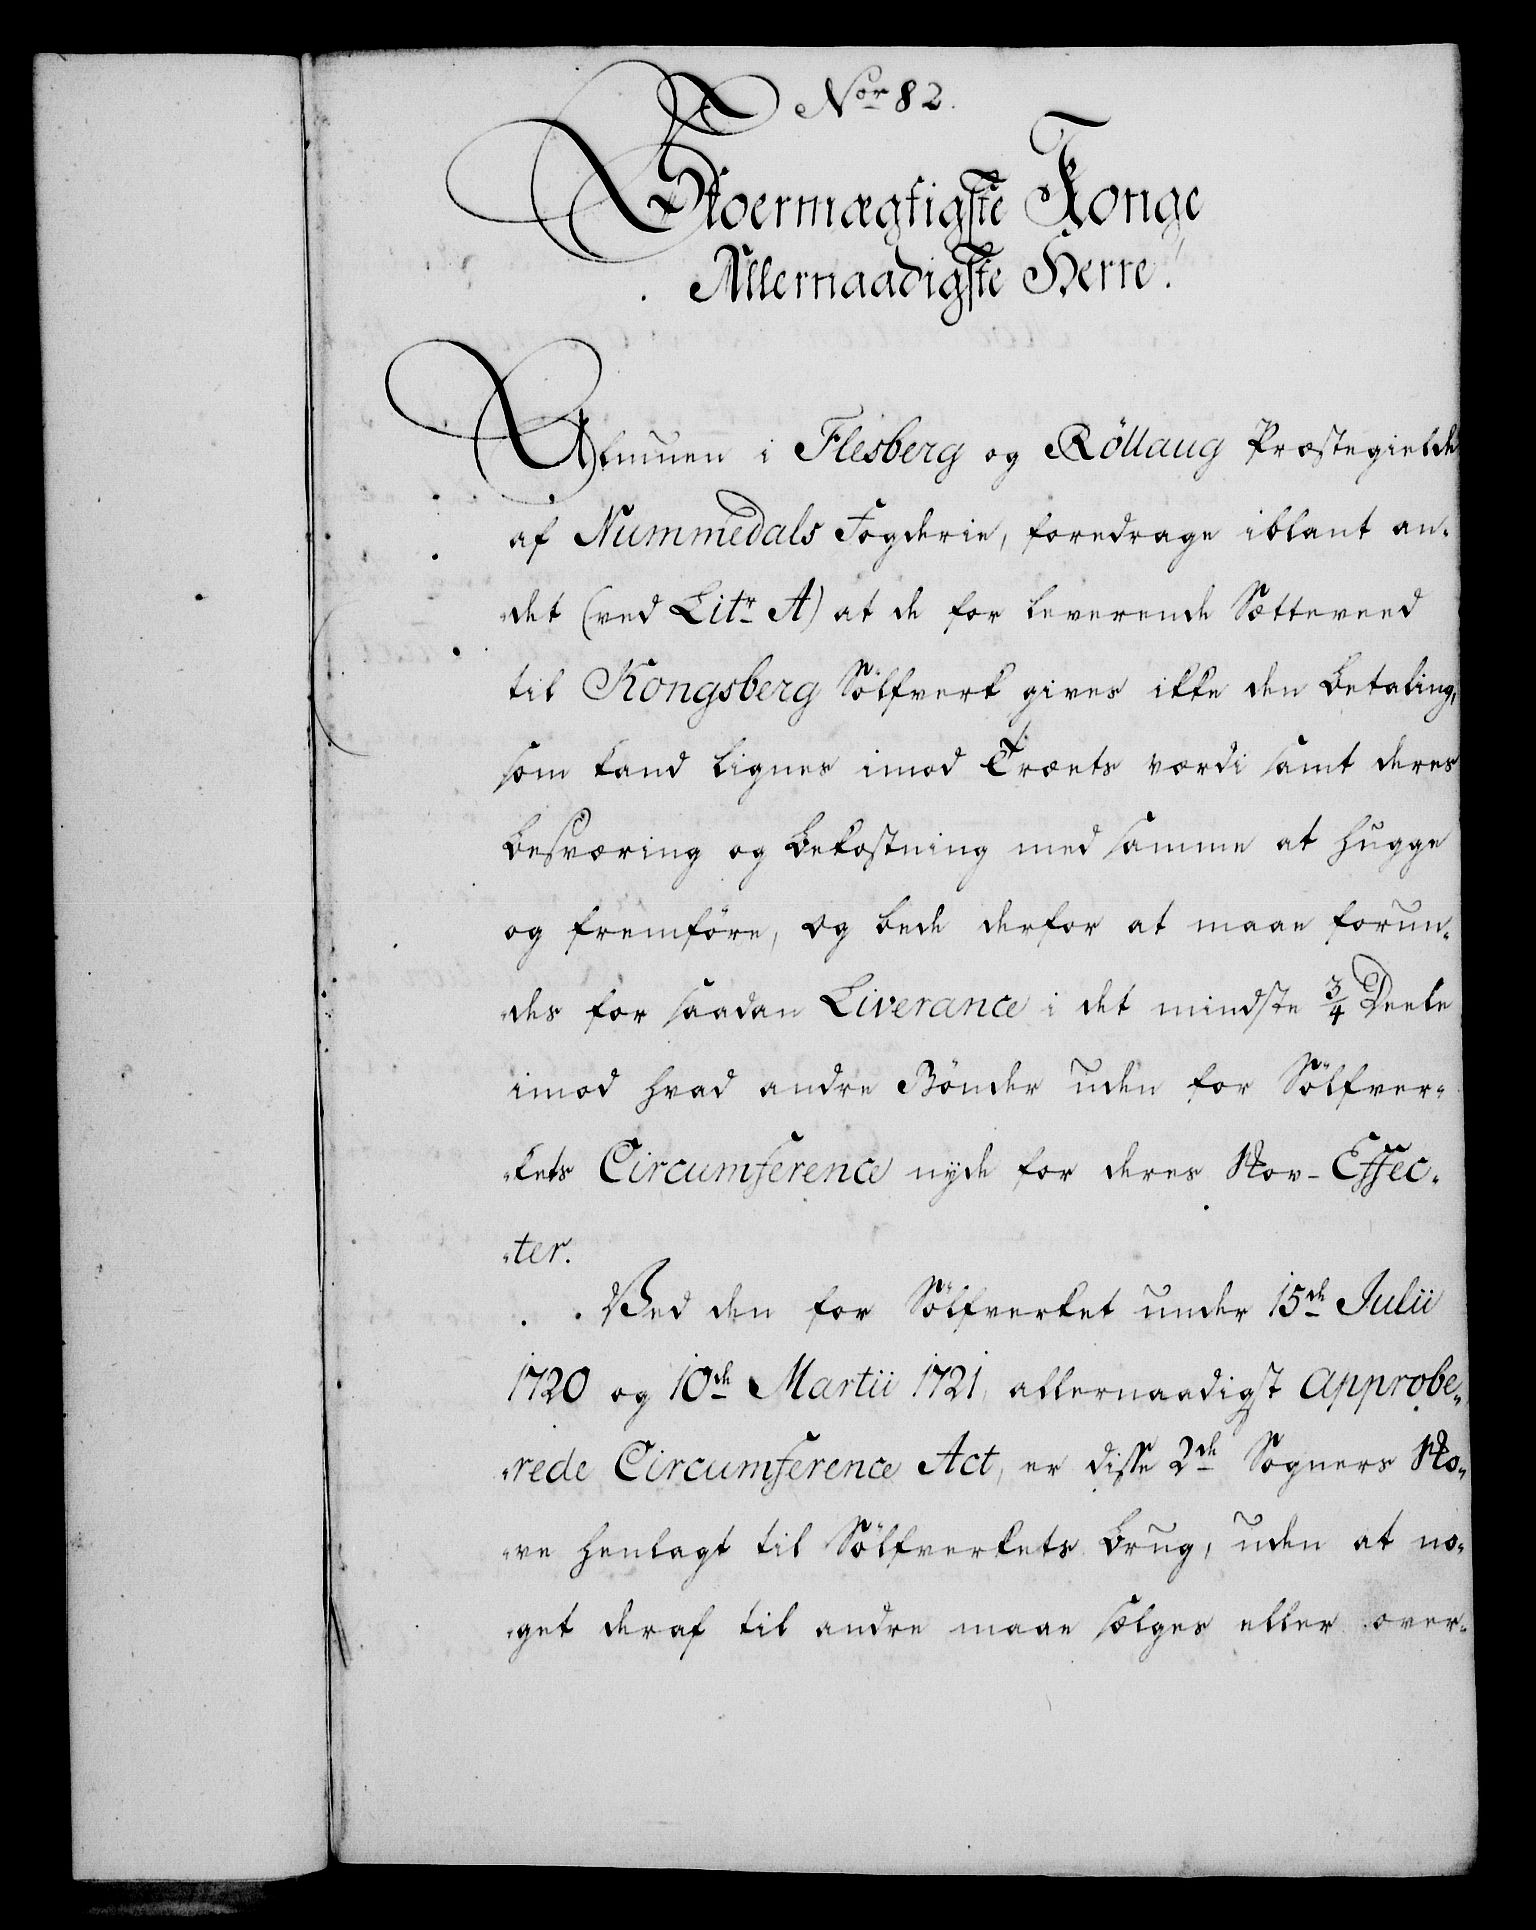 Nor 82.
Stoermægtigste Konge
Allernaadigste Herre!
Almuen i Flesberg og Röllaug Præstegielde
af Nummedals Fogderie, foredrage iblant an-
-det (ved Litr A) at de for leverende Sætteveed
til Kongsberg Sölfverk gives ikke den Betaling,
som kand lignes imod Træets værdi samt deres
Besværing og Bekostning med samme at hugge
og fremföre, og bede derfor at maae forun-
-des for saadan Liverance i det mindste 3/4 Deele
imod hvad andre Bönder uden for Sölfver-
-kets Circumference nyde for deres Skov-Effec-
-ter.
Ved den for Sölfverket under 15de Julii
1720 og 10de Martii 1721, allernaadigst Approbe-
-rede Circumference Act, er disse 2de Sogners Sko-
-ve henlagt til Sölfverkets Brug, uden at no-
-get deraf til andre maae sælges eller over-